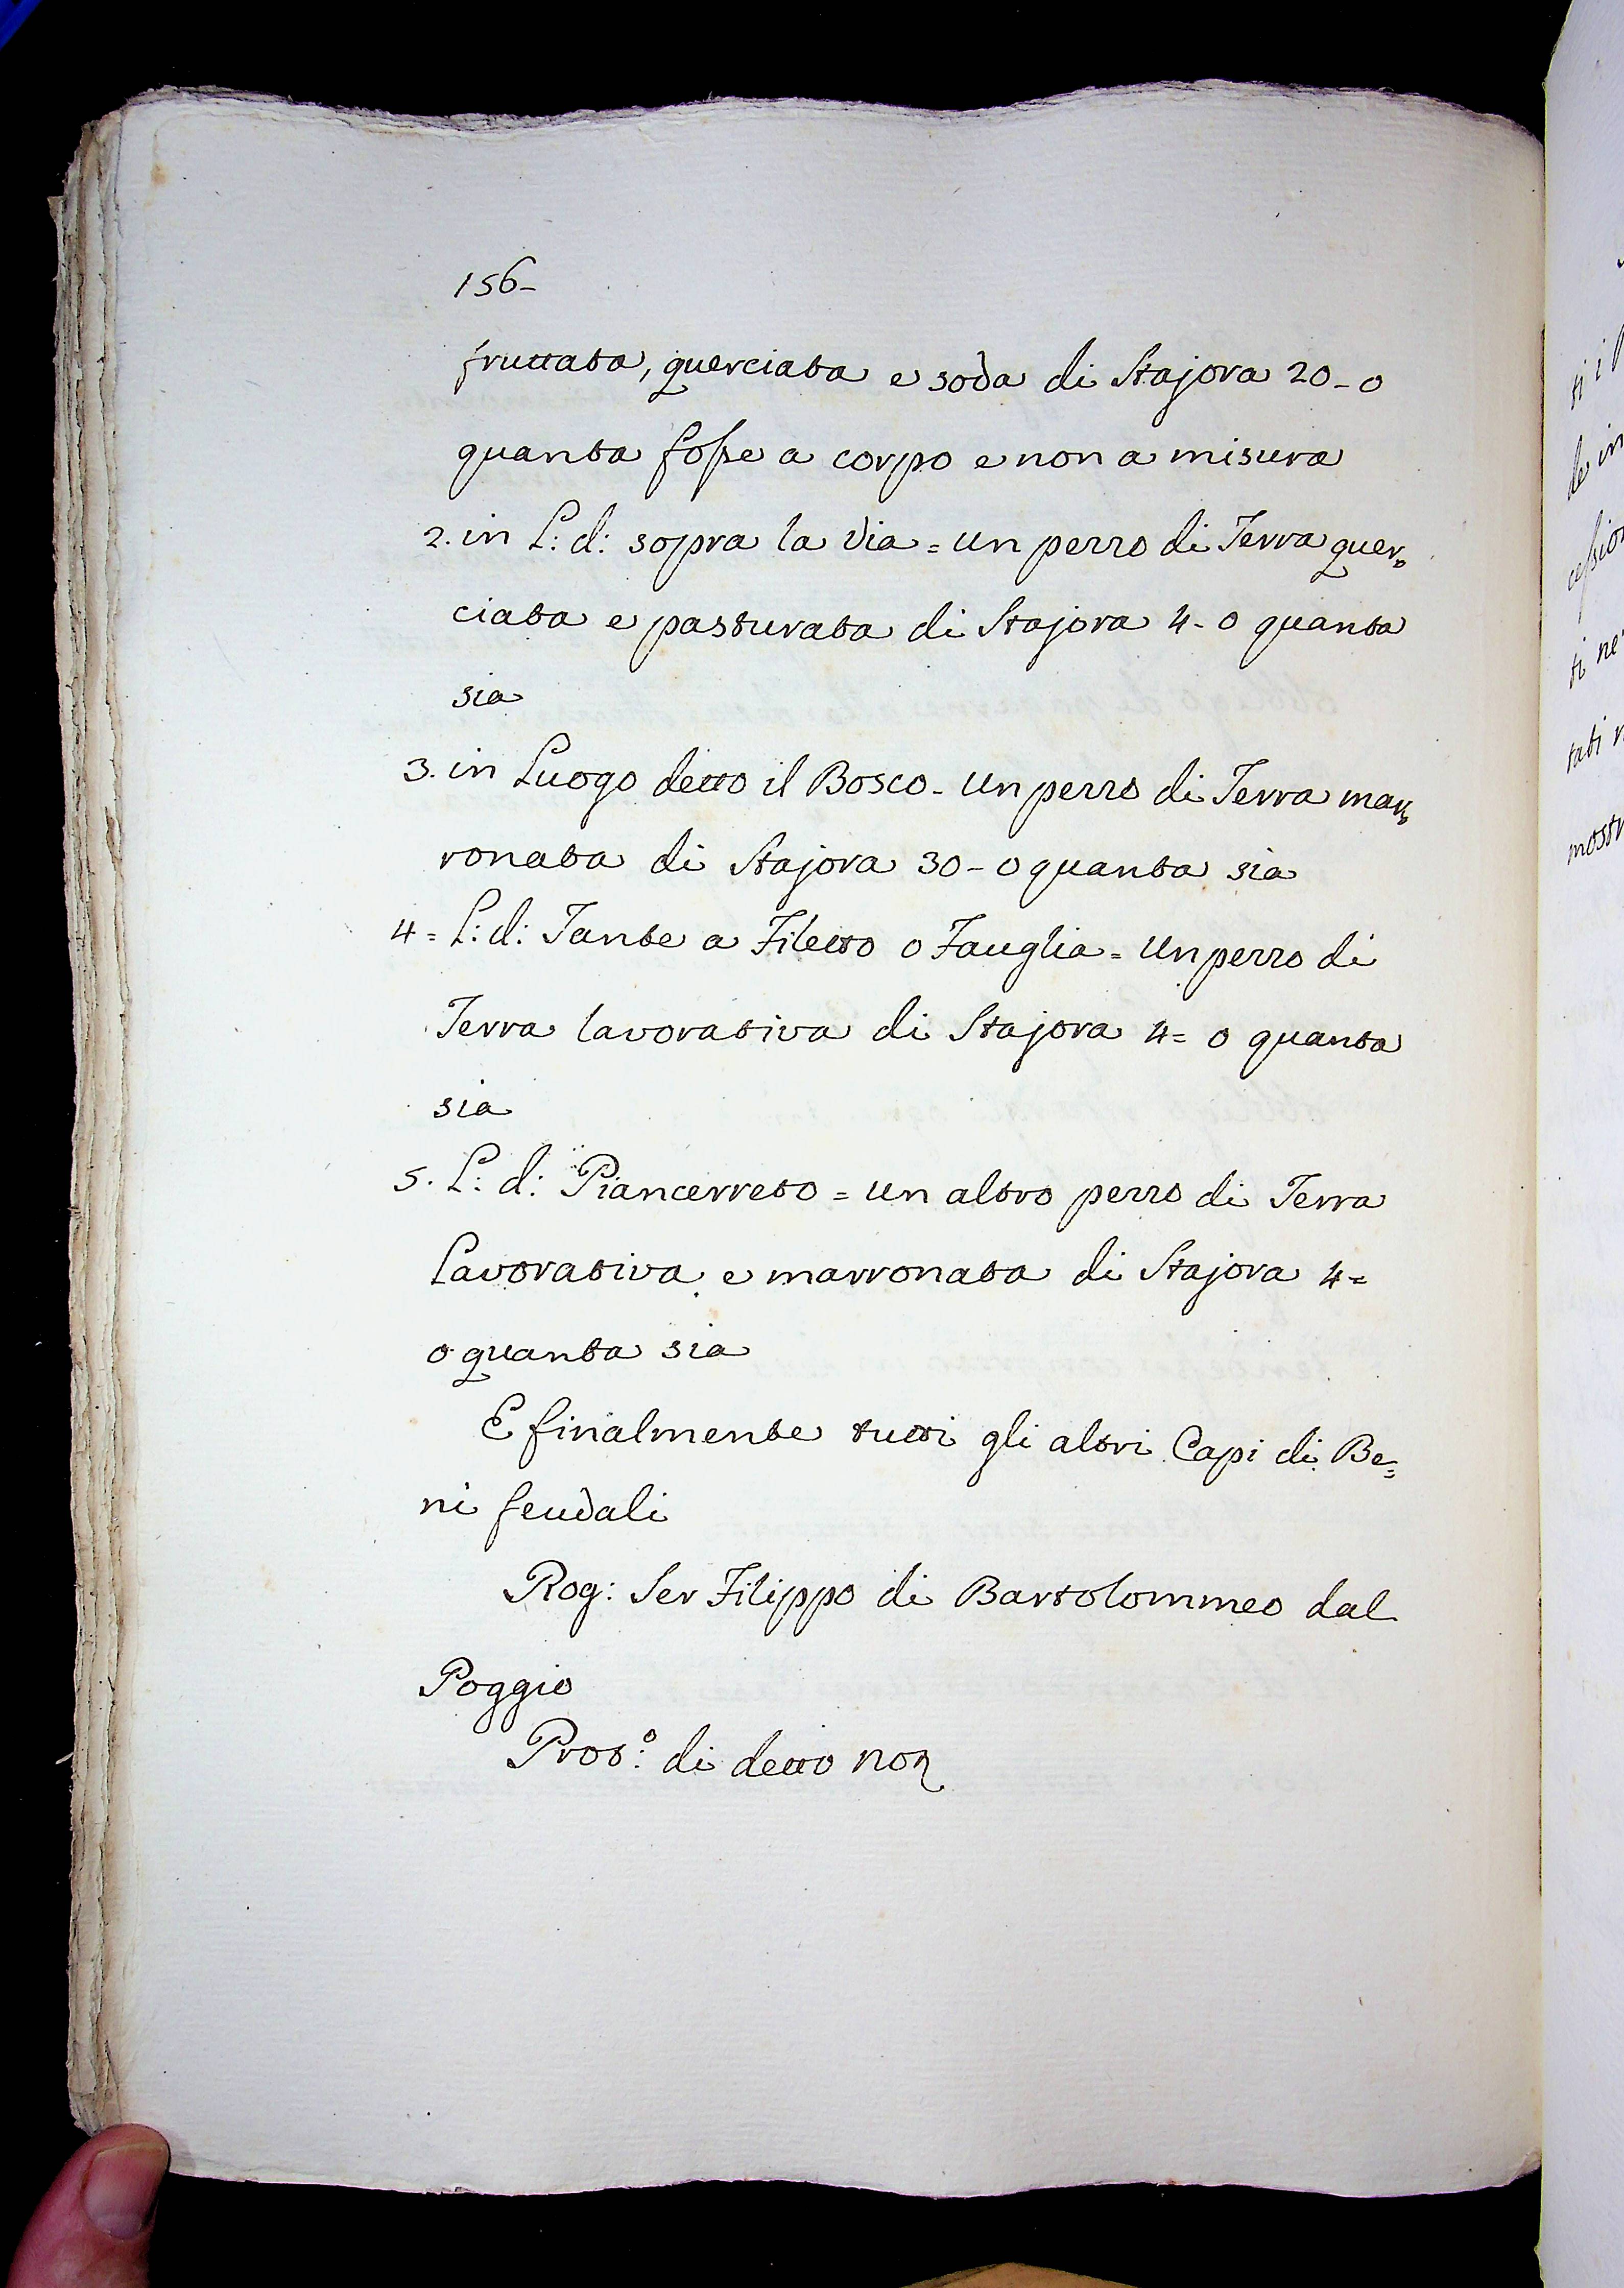 156-
fruttata, querciata e soda di Stajora 20-o
quanta fosse a corpo e non a misura
2. in L: d: sopra la Via = un pezzo di Terra quer=
ciata e pasturata di Stajora 4-o quanta
sia
3. in Luogo detto il Bosco - Un pezzo di Terra mar=
ronata di Stajora 30-o quanta sia
4 = L: d: Tante a Filetto o Fauglia = Un pezzo di
Terra lavorativa di Stajora 4= o quanta
sia
5. L: d: Piancerreto = un altro pezzo di Terra
Lavorativa e marronata di Stajora 4=
o quanta sia
E finalmente tutti gli altri Capi di Be=
ni feudali
Rog: Ser Filippo di Bartolommeo dal
Poggio
Prot:º di detto non
ti i
de in
ti ne
tati
mostr